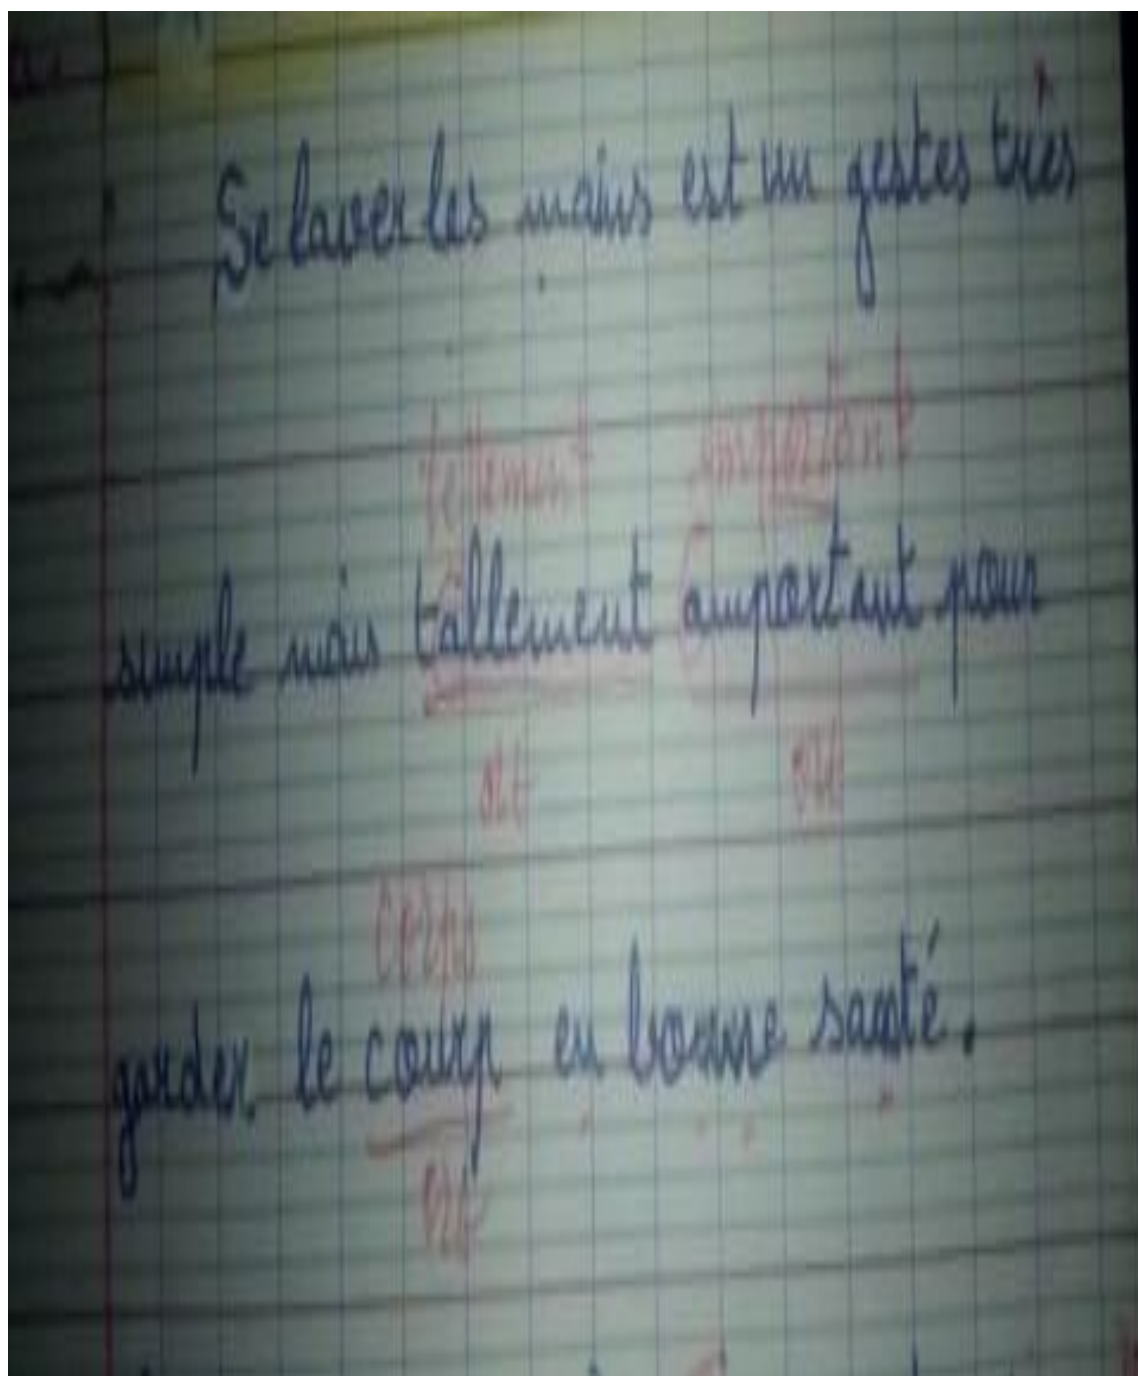 Se laver les mains est un gestes très
tellement important
simple mais tallement amportant pour
ort
corps
garder le courp en bonne santé.